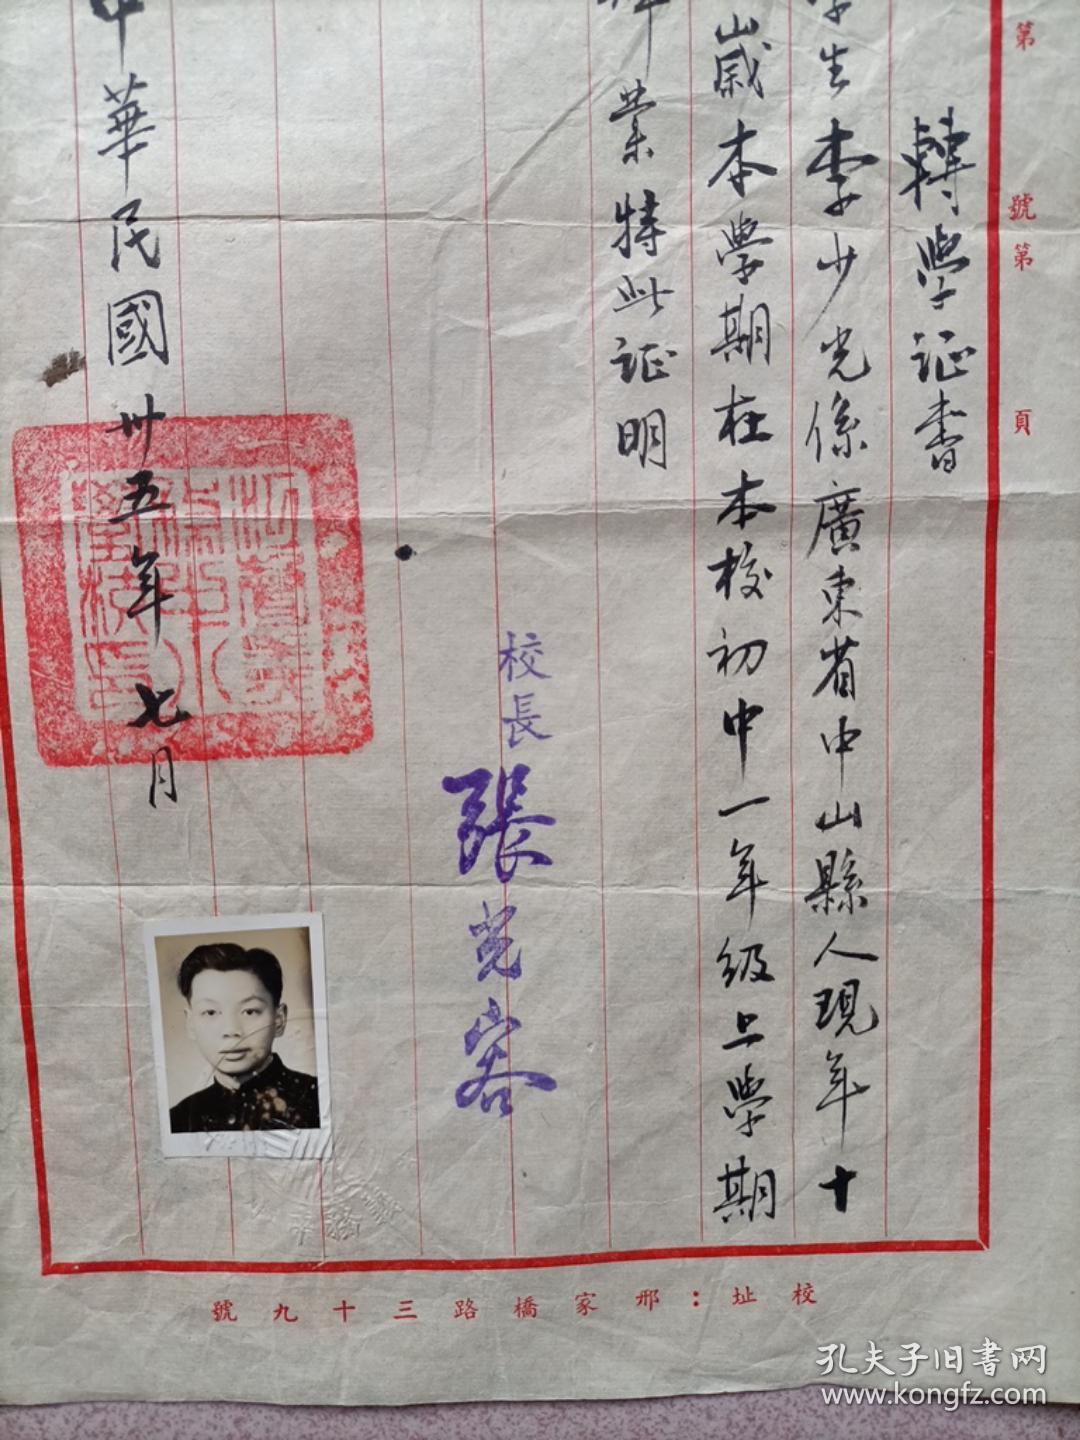 第 號第 頁
轉學证書
學生李少光係廣東省中山縣人現年十
歲本學期在本校初中一年级上學期
業特此证明
校長 張光容
中華民國卅五年七月
校址：邢家橋路三十九號
孔夫子旧書网
www.kongfz.com